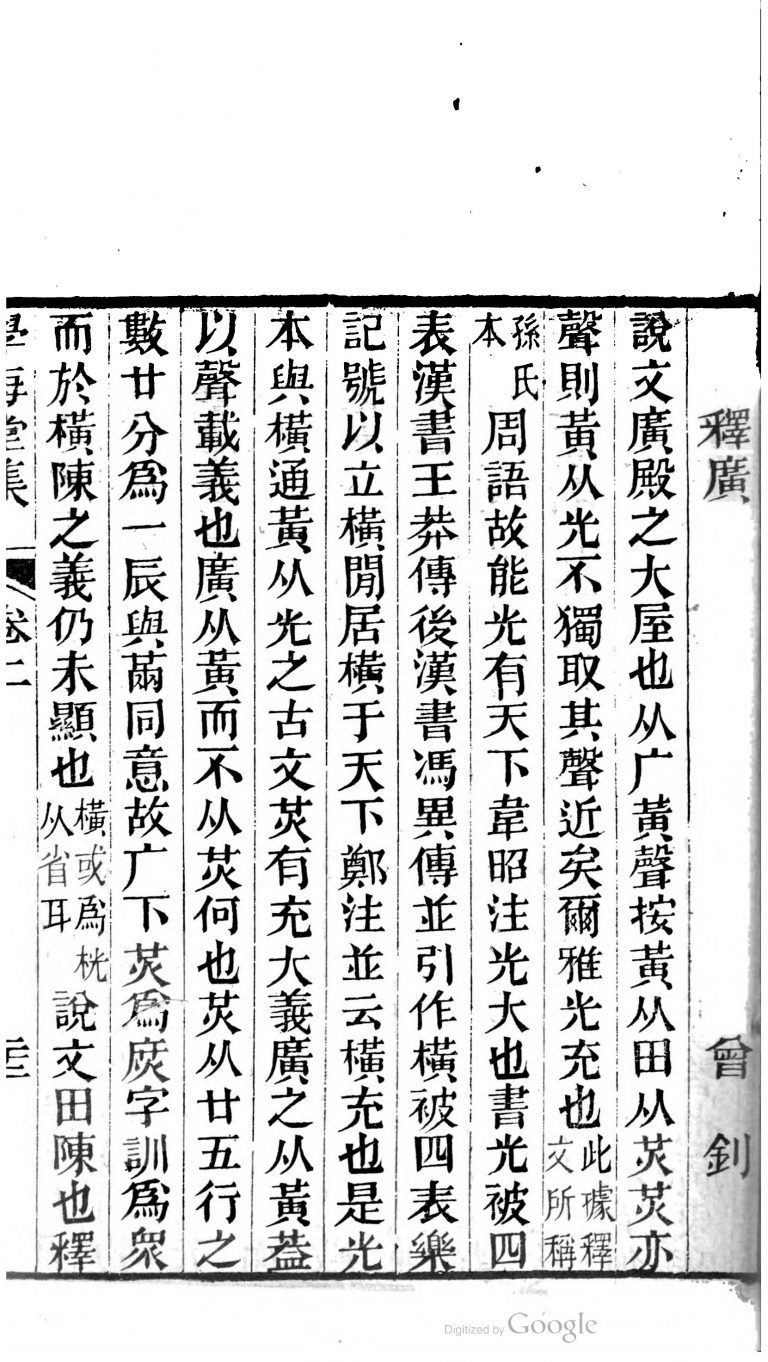 釋廣
曾釗
說文廣殿之大屋也从广黃聲按黃从田从炗炗亦
聲則黃从光不獨取其聲近矣爾雅光充也此據釋文所稱
孫氏本周語故能光有天下韋昭注光大也書光被四
表漢書王莽傳後漢書馮異傳並引作橫被四表樂
記號以立橫閒居橫于天下鄭注並云橫充也是光
本與橫通黃从光之古文炗有充大義廣之从黃葢
以聲載義也廣从黃而不从炗何也炗从廿五行之
數廿分爲一辰與㒼同意故广下炗爲庶字訓爲眾
而於橫陳之義仍未顯也橫或爲桄从省耳說文田陳也釋
學海堂集
卷二
Digitized by Google